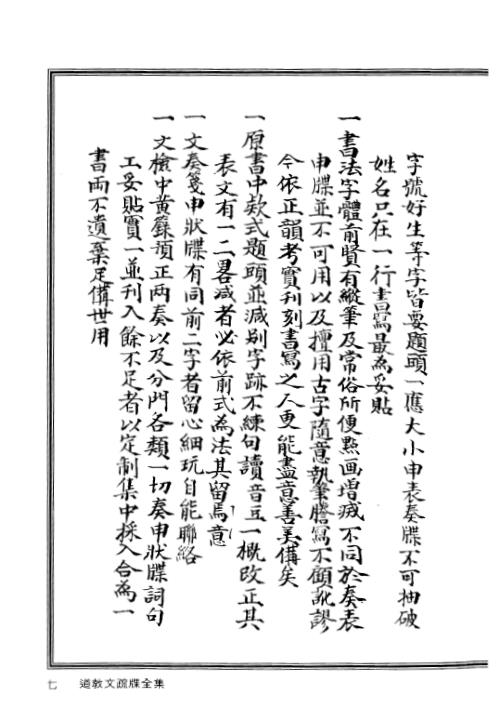 字號好生等字皆要題頭一應大小申表奏牒不可抽破
姓名只在一行書寫最為妥貼
一書法字體前賢有縱筆及常俗所便點画增减不同於奏表
申牒並不可用以及擅用古字隨意執筆謄寫不顧訛謬
今依正韻考實刊刻書寫之人更能盡意善美俻矣
一原書中欵式題頭並减别字跡不練句讀音豆一概改正其
表文有一二畧减者必依前式為法其留焉意
一文奏箋申狀牒有同前二字者留心細玩自能聯絡
一文檢中黄籙預正兩奏以及分門各類一切奏申狀牒詞句
工妥貼實一並刊入餘不足者以定制集中採入合為一
書而不遺棄足俻世用
七 道教文疏牒全集